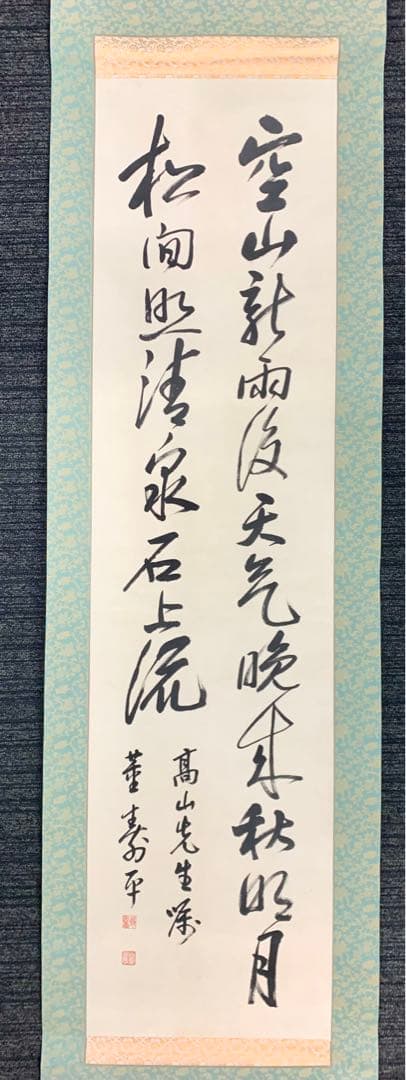 空山新雨後天气晚来秋明月
松间照清泉石上流
高山先生嘱
董寿平